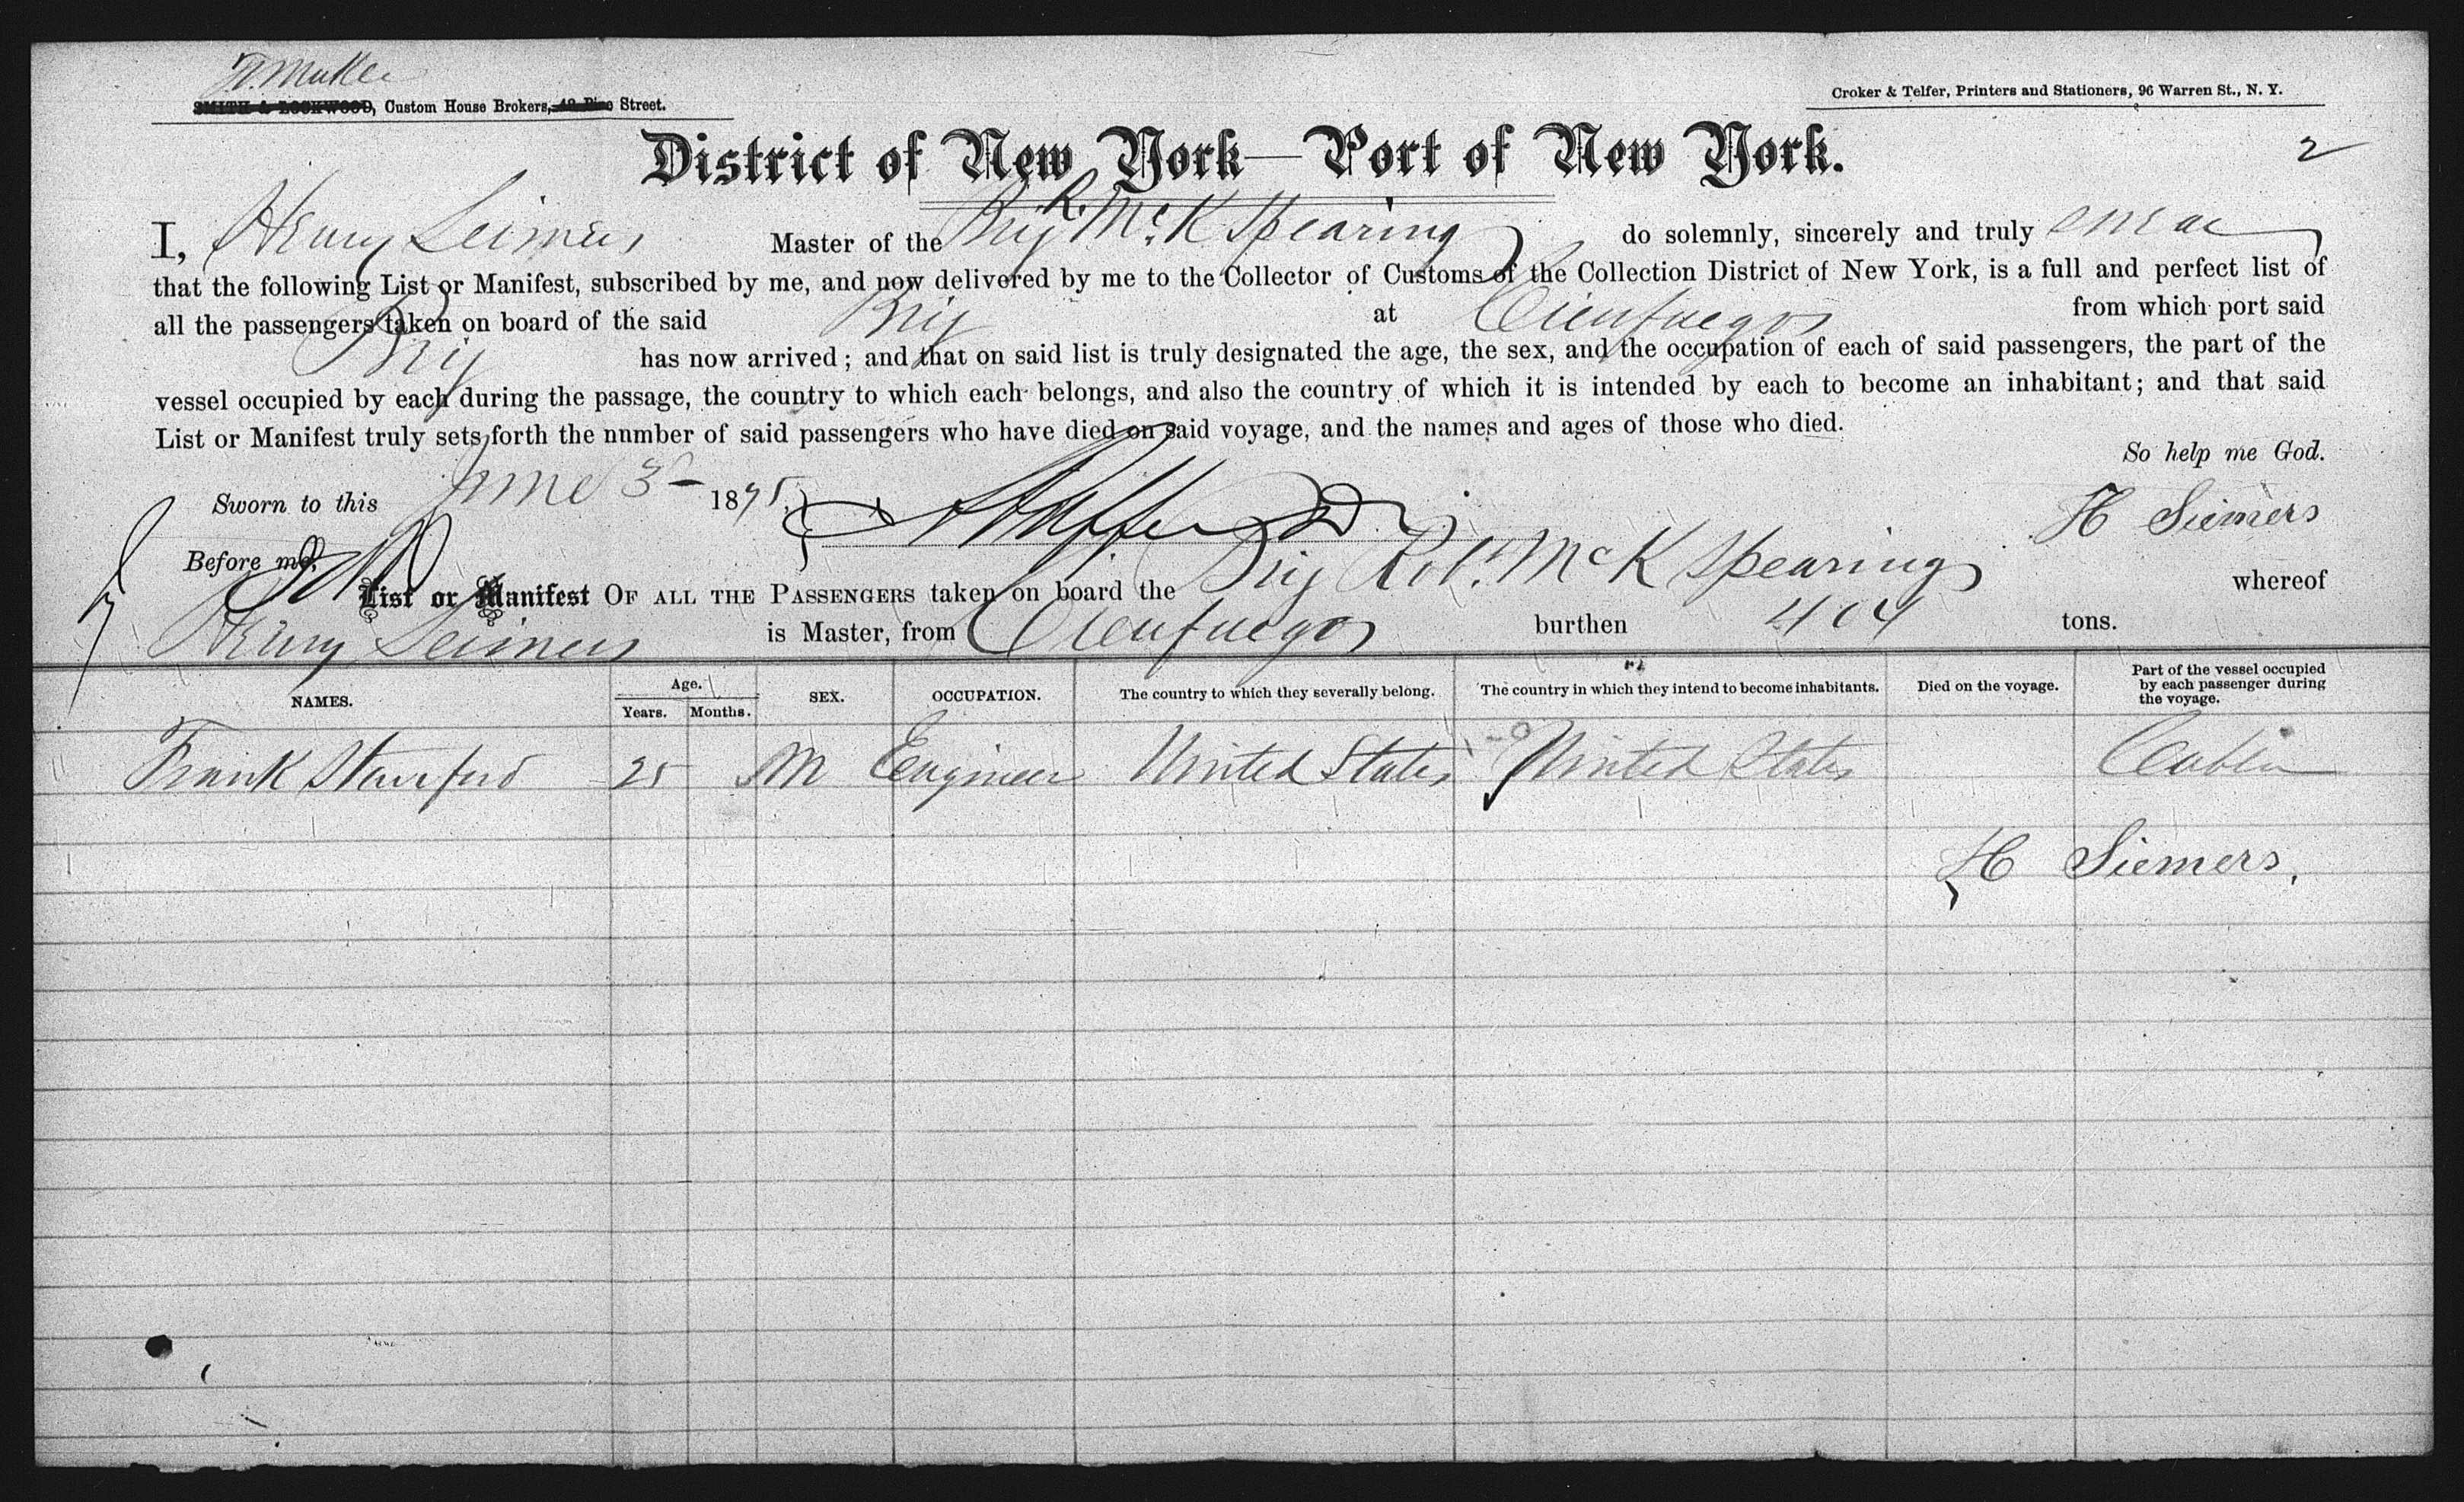 SMITH & LOCKWOOD, Custom House Brokers, 48 Pine Street.
Croker & Telfer, Printers and Stationers, 96 Warren St., N. Y.
District of New York—Port of New York.
2
I, Henry Seimers Master of the Brig R. McK Spearing do solemnly, sincerely and truly swear
that the following List or Manifest, subscribed by me, and now delivered by me to the Collector of Customs of the Collection District of New York, is a full and perfect list of
all the passengers taken on board of the said Brig at Cienfuegos from which port said
Brig has now arrived; and that on said list is truly designated the age, the sex, and the occupation of each of said passengers, the part of the
vessel occupied by each during the passage, the country to which each belongs, and also the country of which it is intended by each to become an inhabitant; and that said
List or Manifest truly sets forth the nnmber of said passengers who have died on said voyage, and the names and ages of those who died.
So help me God.
Sworn to this June 3 1875.
H Siemers
Before me,
List or Manifest OF ALL THE PASSENGERS taken on board the Brig Robt. McK Spearing whereof
Henry Seimers is Master, from Cienfuegos burthen 404 tons.
NAMES. Age. Years. Months. SEX. OCCUPATION. The country to which they severally belong. The country in which they intend to become inhabitants. Died on the voyage. Part of the vessel occupied by each passenger during the voyage.
Frank 25 M Engineer United States United States Cabin
H Siemers,